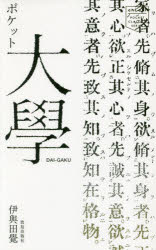 家者先脩其身欲脩其身者先
其心欲正其心者先誠其意欲誠
其意者先致其知致知在格物。
ポケット
大學
DAI-GAKU
伊與田覺
致知出版社